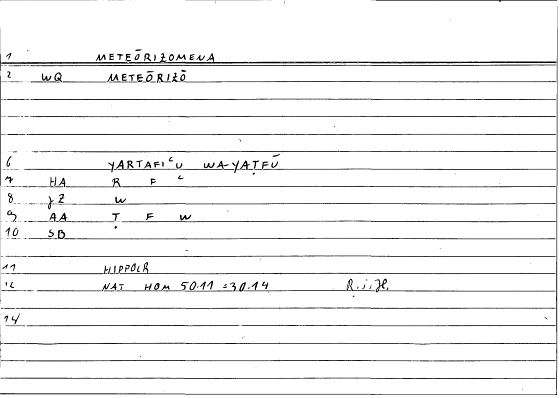 1 METEŌRIZOMENA
2 WQ METEŌRIZŌ
6 YARTAFIᶜU WA-YAṬFŪ
7 HA R F ᶜ
8 jZ W
9 AA Ṭ F W
10 SB
11 HIPPOLR
12 NAT HOM 50.11 = 30.14
14